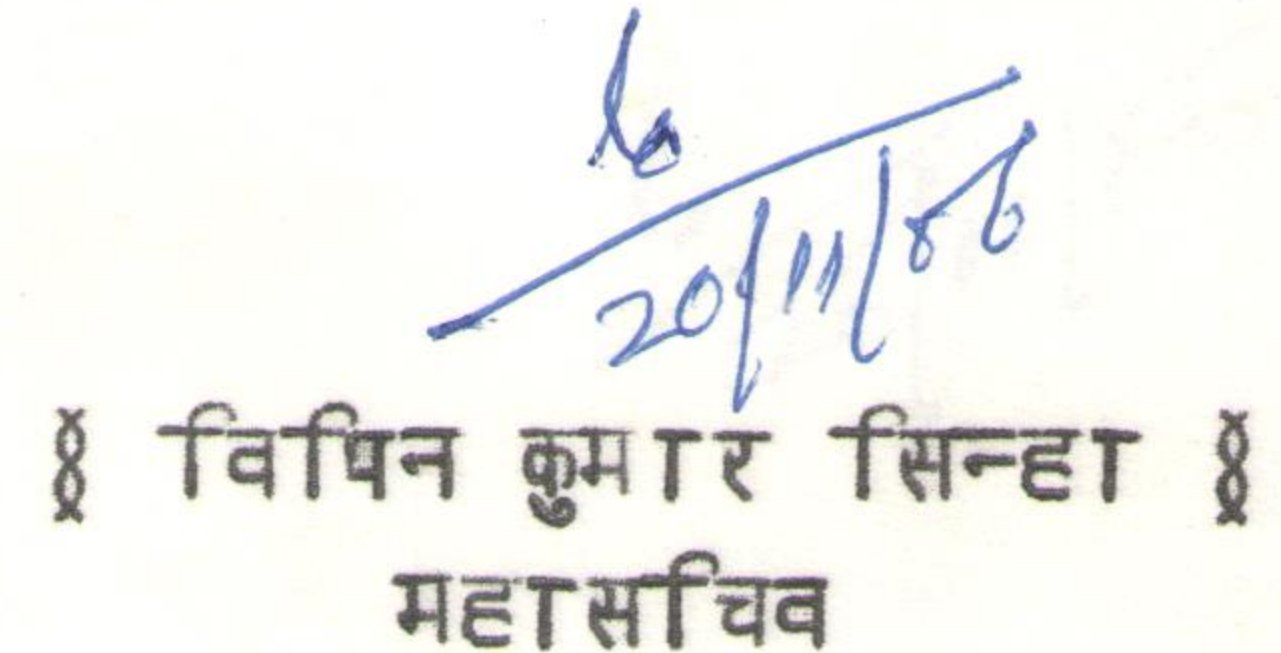 20/11/86
§ विपिन कुमार सिन्हा §
महासचिव